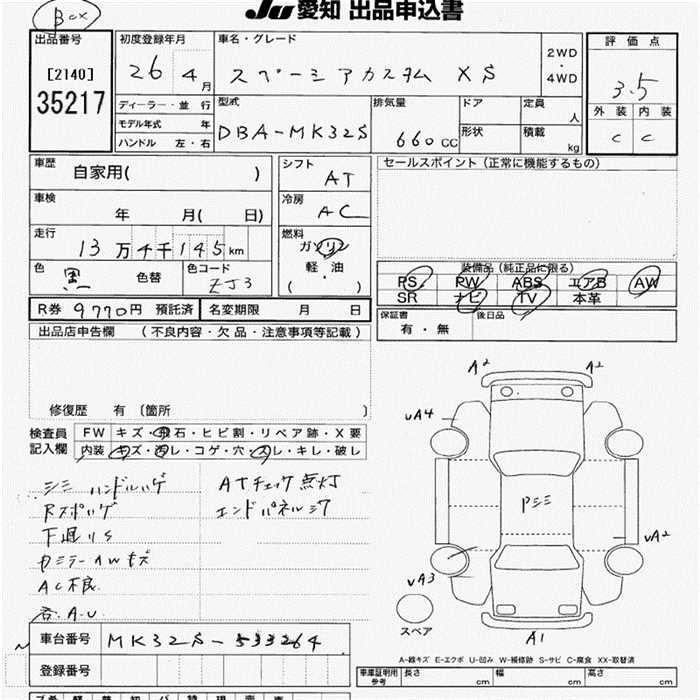 Box
JU 愛知 出品申込書
出品番号
[2140]
35217
初度登録年月
26 4月
車名・グレード
スペーシアカスタム XS
2WD
・
4WD
評価点
3.5
外装 内装
C C
ディーラー・並行
モデル年式 年
ハンドル 左・右
型式
DBA-MK32S
排気量
660cc
ドア
形状
定員
人
積載
kg
車歴
自家用( )
車検
年 月( 日)
走行
13万4千145km
色
黒 色替
色コード
ZJ3
シフト
AT
冷房
AC
燃料
ガソリン
軽・油
( ・ )
セールスポイント(正常に機能するもの)
装備品(純正品に限る)
PS PW ABS エアB AW
SR ナビ TV 本革
保証書
有・無
後日品
R券 9770円 預託済
名変期限 月 日
出品店申告欄 (不良内容・欠品・注意事項等記載)
修復歴 有〔箇所 〕
検査員
記入欄
FW キズ・飛石・ヒビ割・リペア跡・X要
内装 キズ・汚レ・コゲ・穴・スレ・キレ・破レ
シミ ハンドルハゲ
ATチェック点灯
エンドパネルシワ
AC不良
A2
A2
uA4
Pシミ
uA2
uA3
スペア
A1
A-線キズ E-エクボ U-凹み W-補修跡 S-サビ C-腐食 XX-取替済
車台番号 MK32S-533264
登録番号
車庫証明用
参考
長さ cm 幅 cm 高さ cm